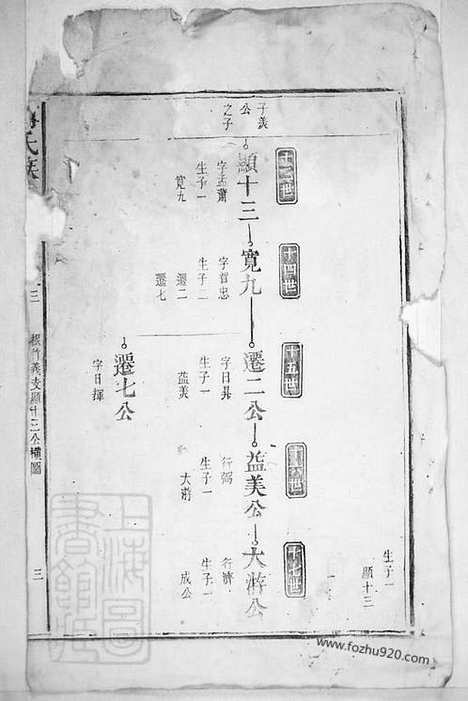 生子一
顯十三
十三世
十四世
十五世
十六世
十七世
子羨
公
之子
顯十三
寬九
遷二公
益美公
大濟公
字孟肅
生子一
寬九
字哲忠
生子二
遷二
遷七
字日昇
生子一
益美
行弼
生子一
大濟
行濟
生子一
成公
遷七公
字日揮
氏族
三
根竹義支顯十三公橫圖
三
上海圖書館藏
www.fozhu920.com